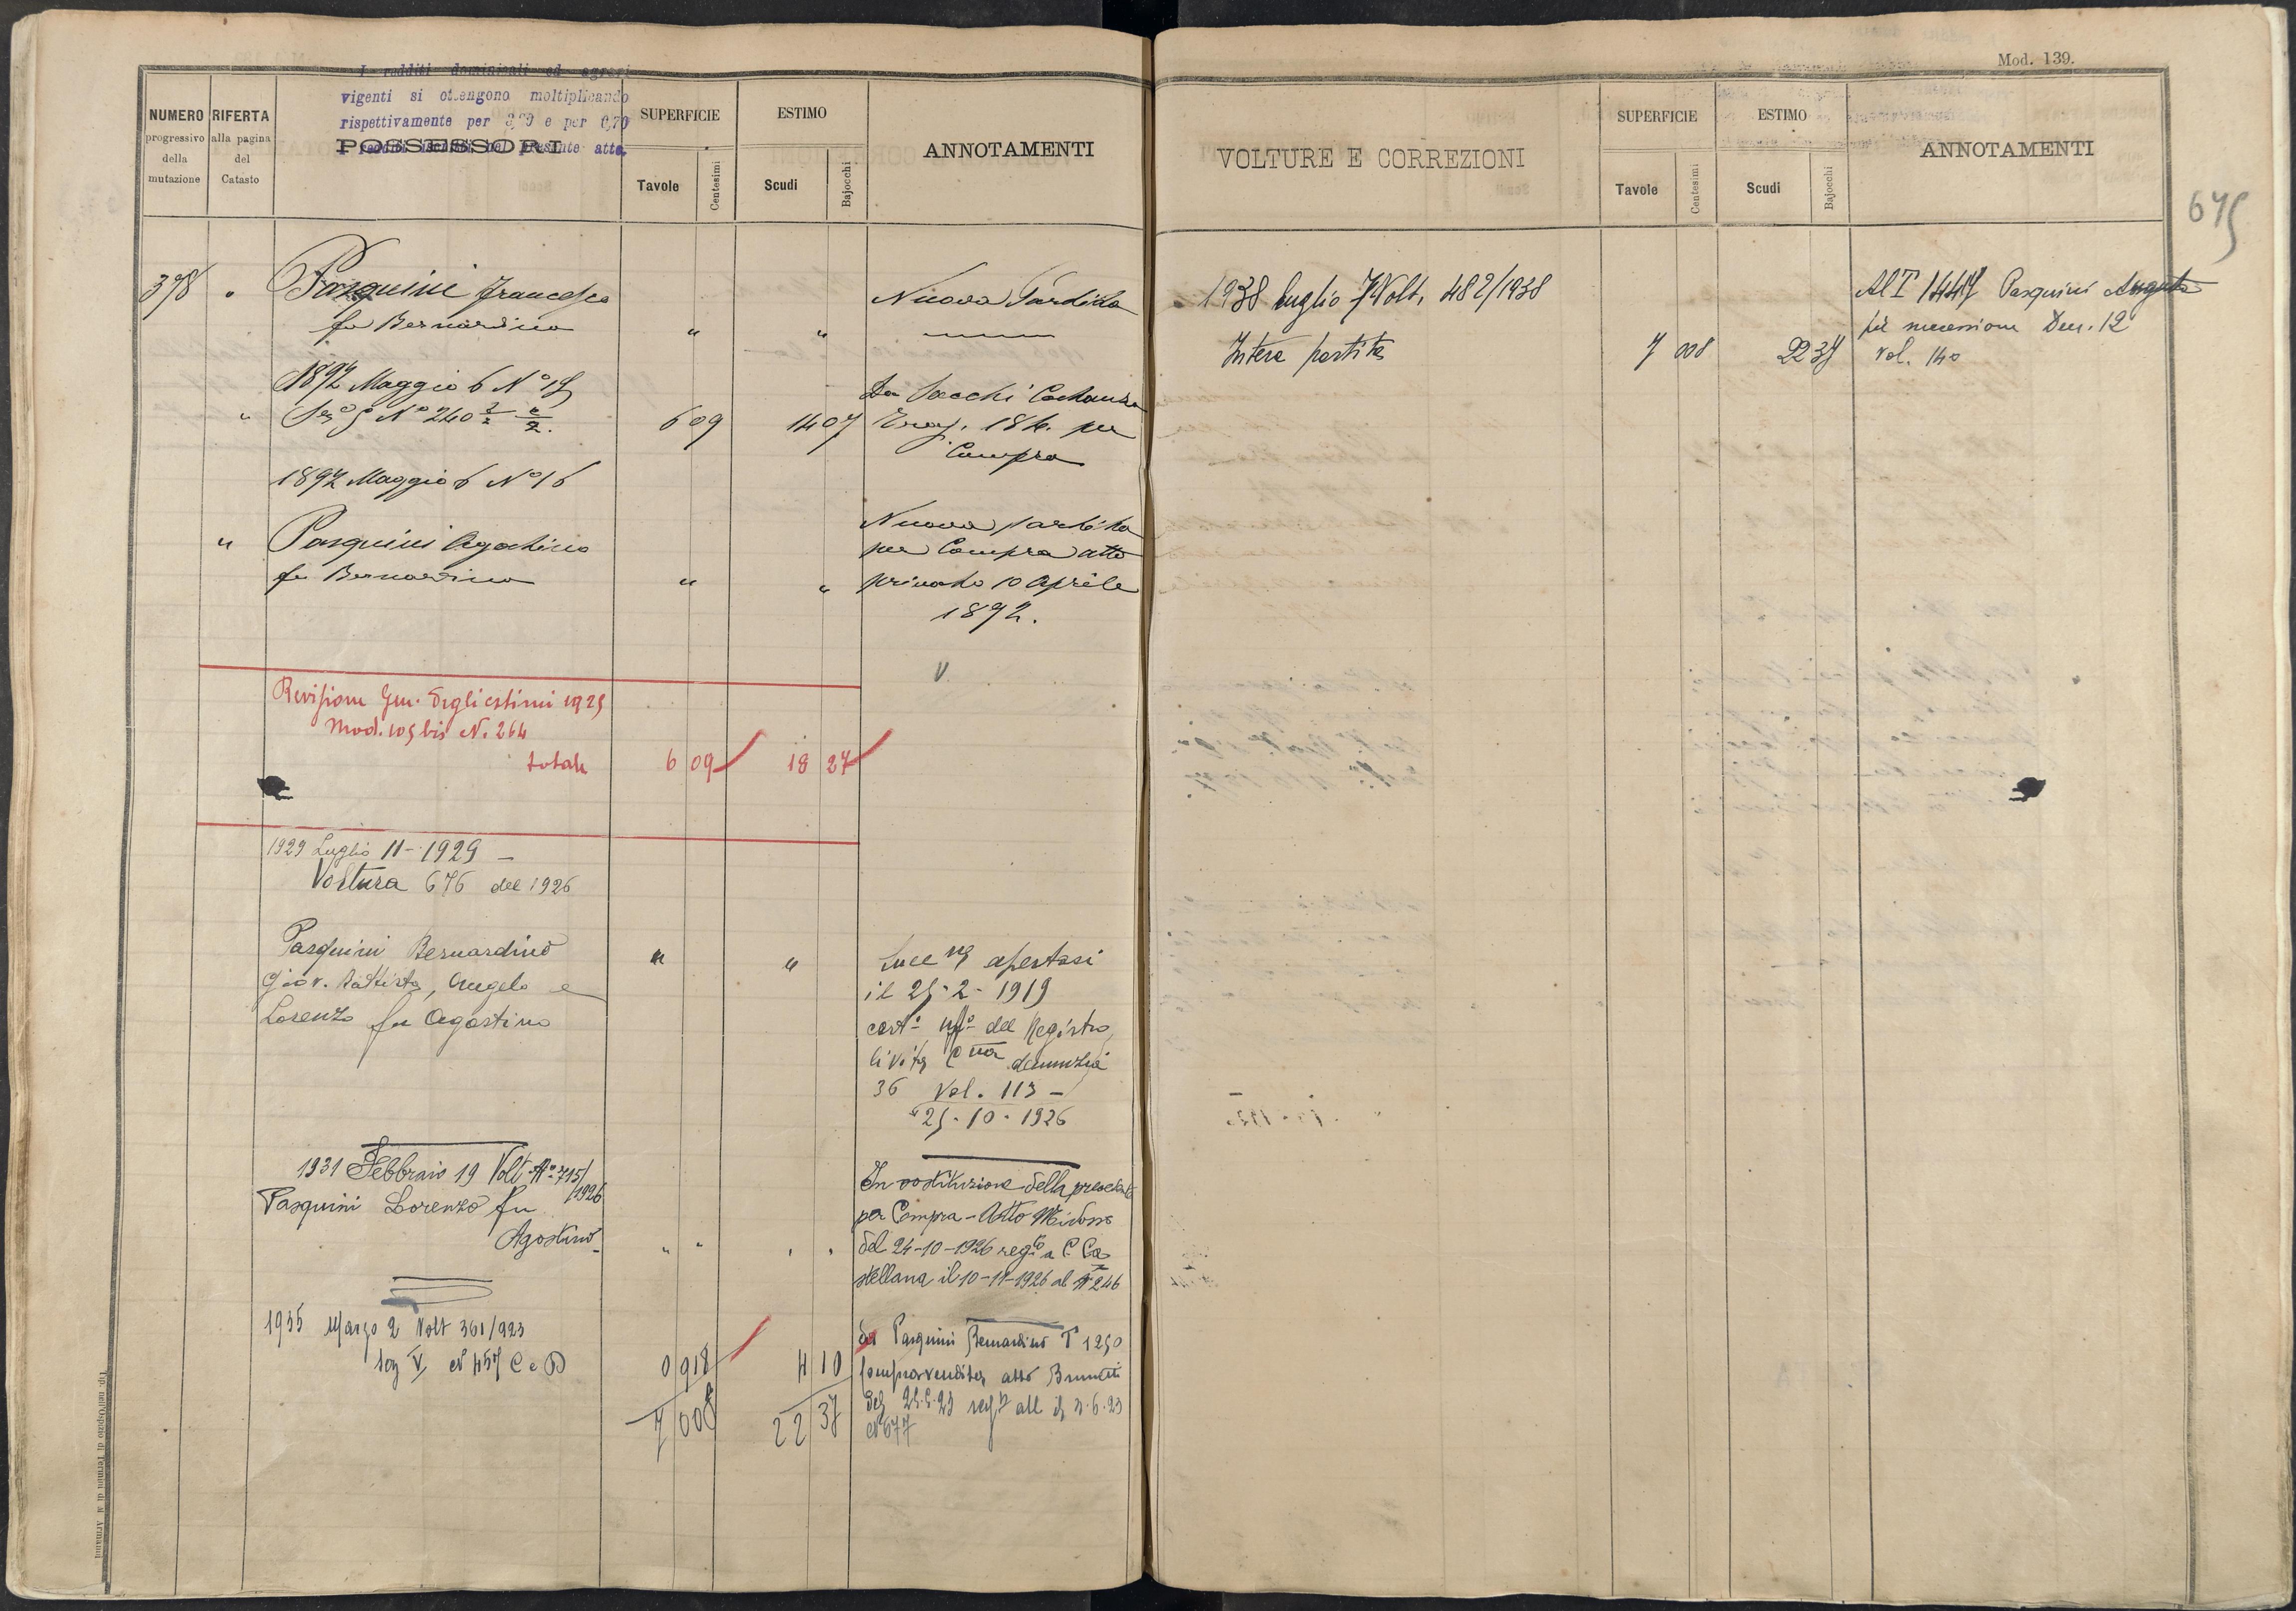 Mod. 139.
I redditi dominicali ed agrari
vigenti si ottengono moltiplicando
rispettivamente per e per 0,70
i redditi nel presente atto.
NUMERO
progressivo
della
mutazione
RIFERTA
alla pagina
del
Catasto
POSSESSORI
SUPERFICIE
Tavole
Centesimi
ESTIMO
Scudi
Bajocchi
ANNOTAMENTI
VOLTURE E CORREZIONI
SUPERFICIE
Tavole
Centesimi
ESTIMO
Scudi
Bajocchi
ANNOTAMENTI
675
378 " Pasquini Francesco Nuova Partita
fu Bernardino " "
1892 Maggio 6 N° 15 Da Sacchi Costanza
" Sez° 5 N° 240 6 09 14 07 184. per
Compra
1892 Maggio 6 N° 16
Nuova partita
" Pasquini Agostino per Compra atto
fu Bernardino " " privato 10 Aprile
1892.
V
Revisione Gen. degli estimi 1925
Mod. 105 bis N. 264
totale 6 09 18 27
1929 Luglio 11-1929 -
Voltura 676 del 1926
Pasquini Bernardino " " Succ apertasi
Giov. Battista, Angelo e il 25-2-1919
Lorenzo fu Agostino cert° uff° del Registro
Civita C denunzia
36 Vol. 113 -
25-10-1926
1931 Febbraio 19 Volt N° 715/1926
In sostituzione della precedente
Pasquini Lorenzo fu per Compra - Atto
Agostino - " " " " del 24-10-1926 reg. to a C. Ca
stellana il 10-11-1926 al N° 246
1935 Marzo 2 Volt 361/923 da Pasquini Bernardino T 1250
Sez V N 457 C e D 0 918 4 10 Compravendita atto Brunetti
7 008 22 37 del 25.5.23 reg
N 677
1938 luglio 7 Volt. 482/1938 Al T 1447 Pasquini Augusto
per successione Den. 12
Intera partita 7 008 22 37 Vol. 140
Tip. nell'Ospizio di Termini di A. Armanni